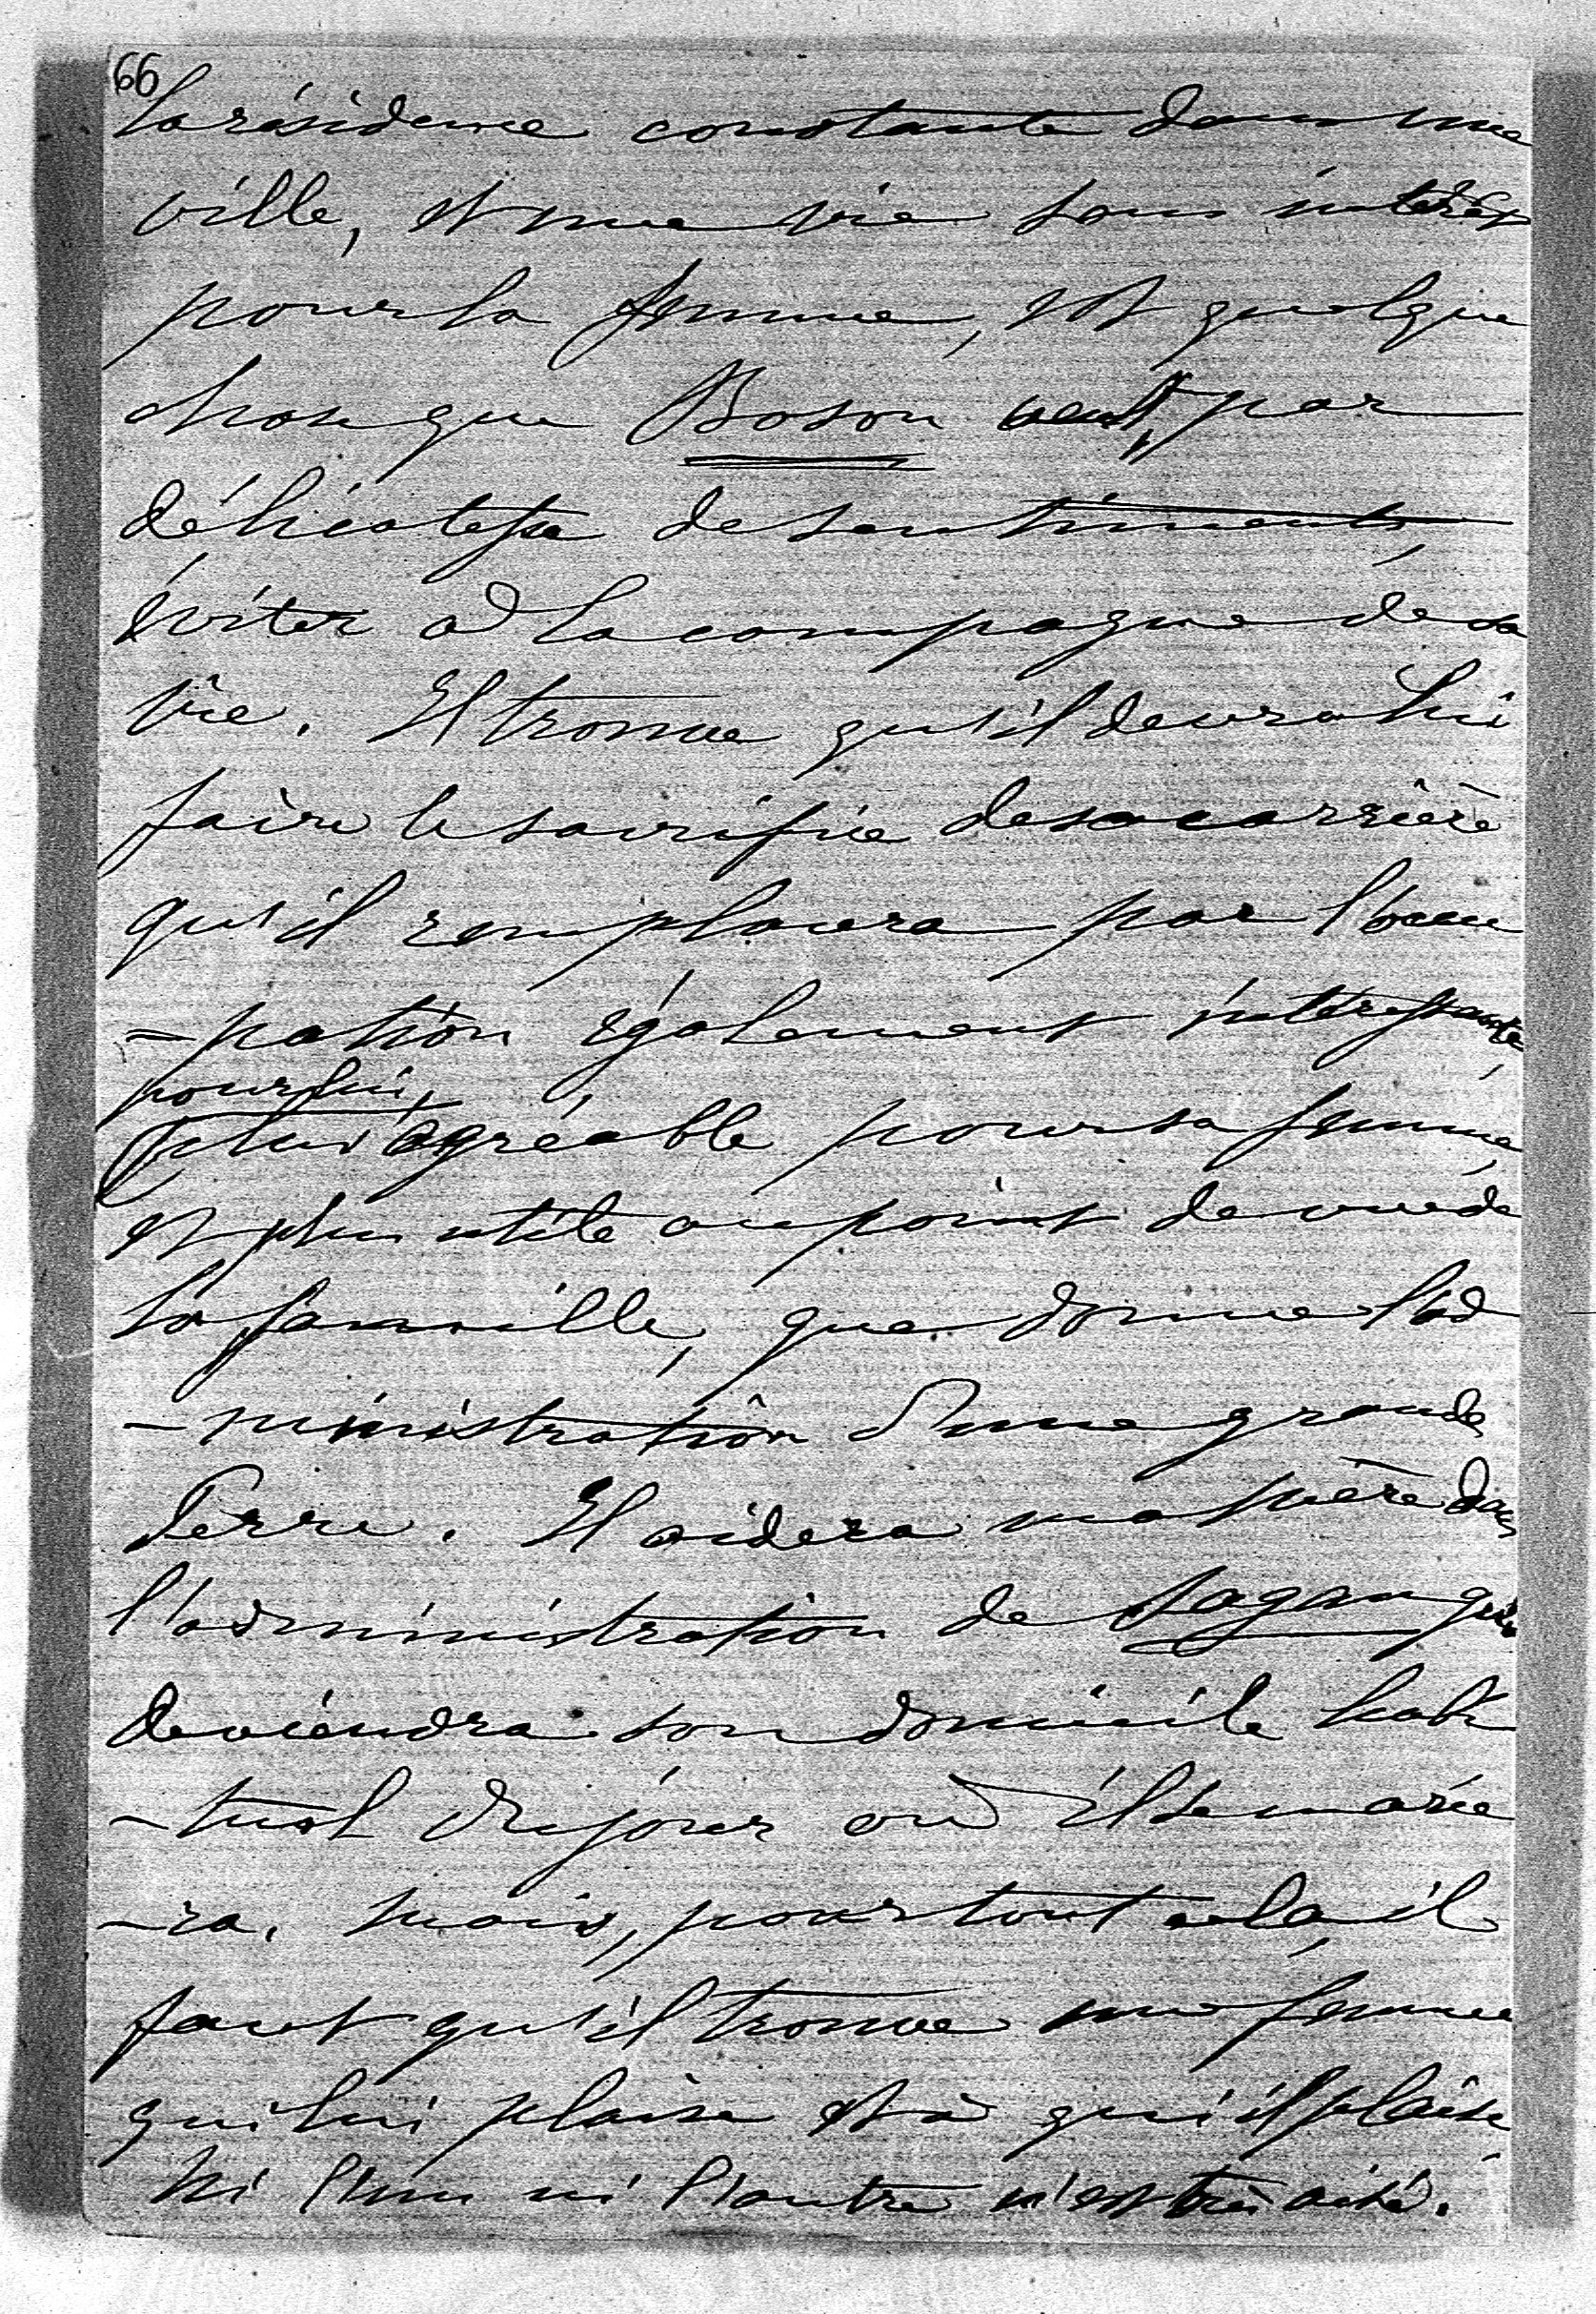 66
la résidence constante dans une
ville, et une vie sans intérêt
pour la femme, est quelque
chose que Boson veut, par
délicatesse de sentiments,
éviter à la compagne de sa
vie. Il trouve qu'il devra lui
faire le sacrifice de sa carrière
qu'il remplacera par l'occu
-pation également intéressante
pour lui,
plus agréable pour sa femme,
et plus utile au point de vue de
la famille, que donne l'ad
-ministration d'une grande
terre. Il aidera ma mère dans
l'administration de Sagan qui
deviendra son domicile habi
-tuel du jour où il se marie
-ra. Mais, pour tout cela, il
faut qu'il trouve une femme
qui lui plaise et à qui il plaise
ni l'un ni l'autre n'est très aisé.